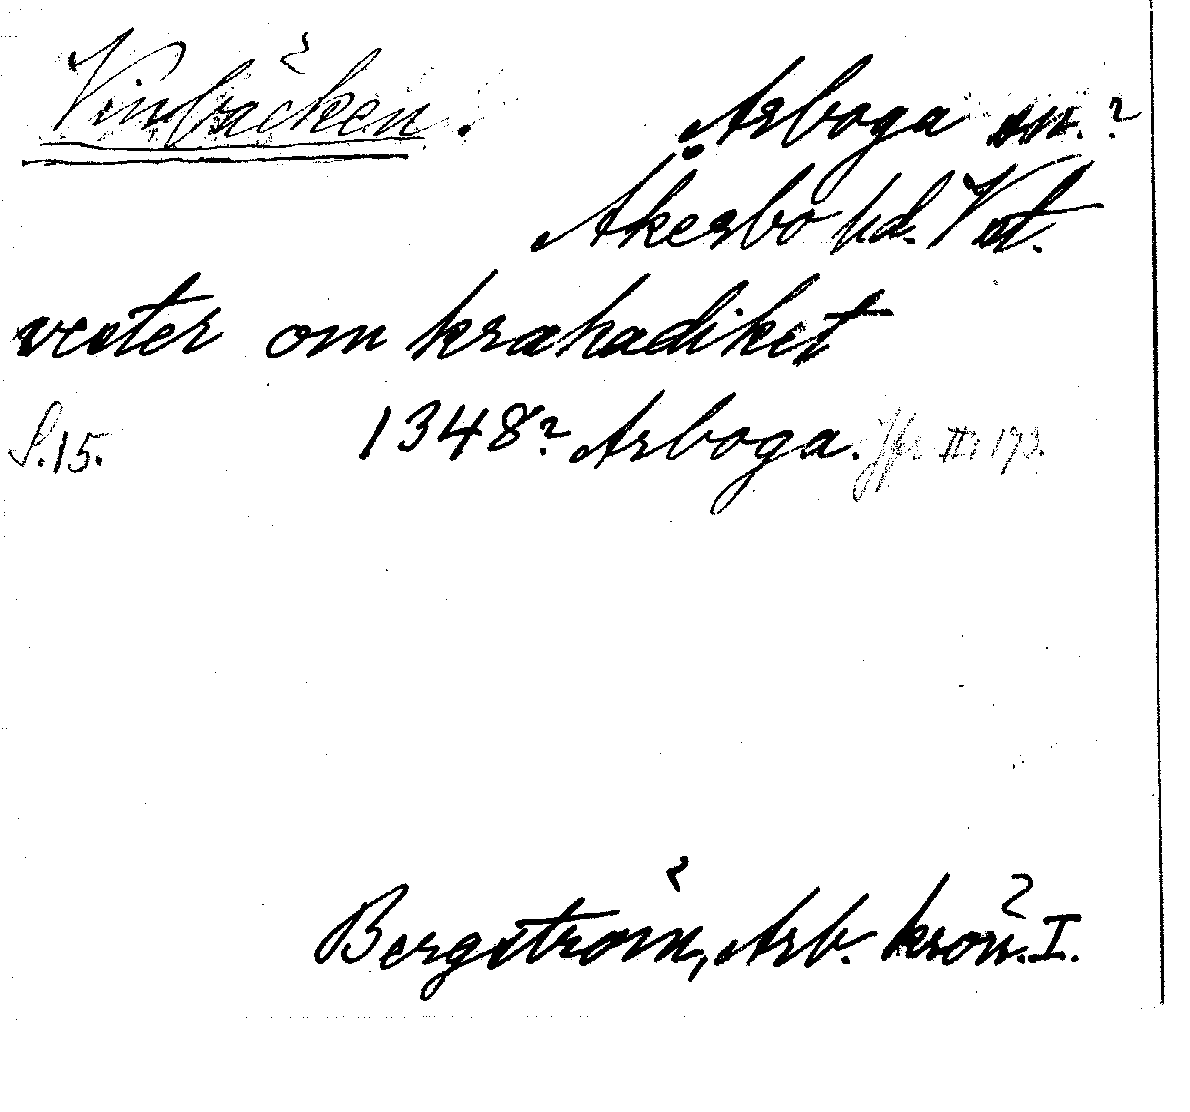 Vinbäcken.
Arboga sn.?
Åkerbo hd. Vstl.
vester om krakadiket
S. 15. 1348? Arboga. Jfr III: 173.
Bergström, Arb. krön. I.